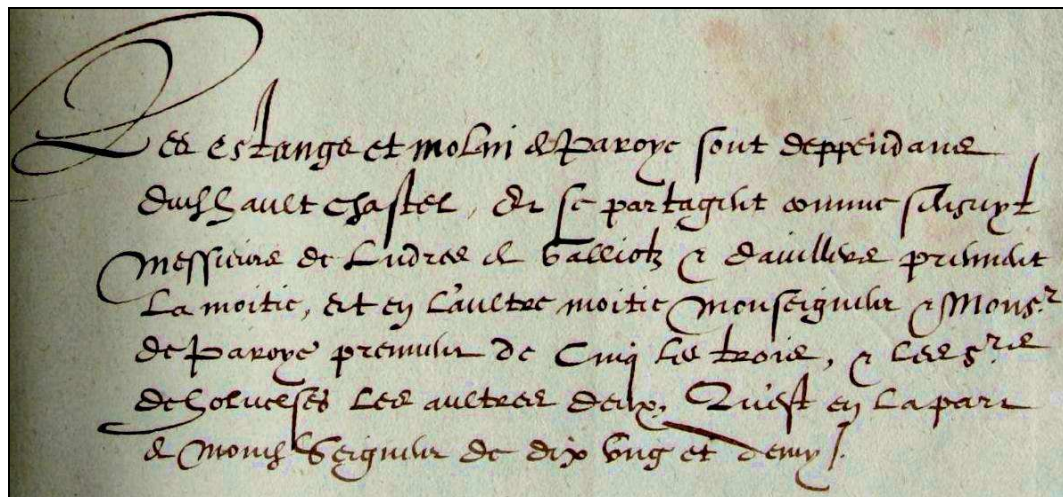 Les estangs et molin de Paroye sont deppendans
dudh hault chastel, Et se partagent comme sensuyt
Messieurs de Ludres de Valliotz & davillers prennent
La moitie, Et en L'aultre moitie Monseigneur & Mons.r
de Paroye prennent de Cinq les trois, & Les s.rs
de les aultres deux. Qu'est en La part
de Mondh Seigneur de dix ung et demy /.